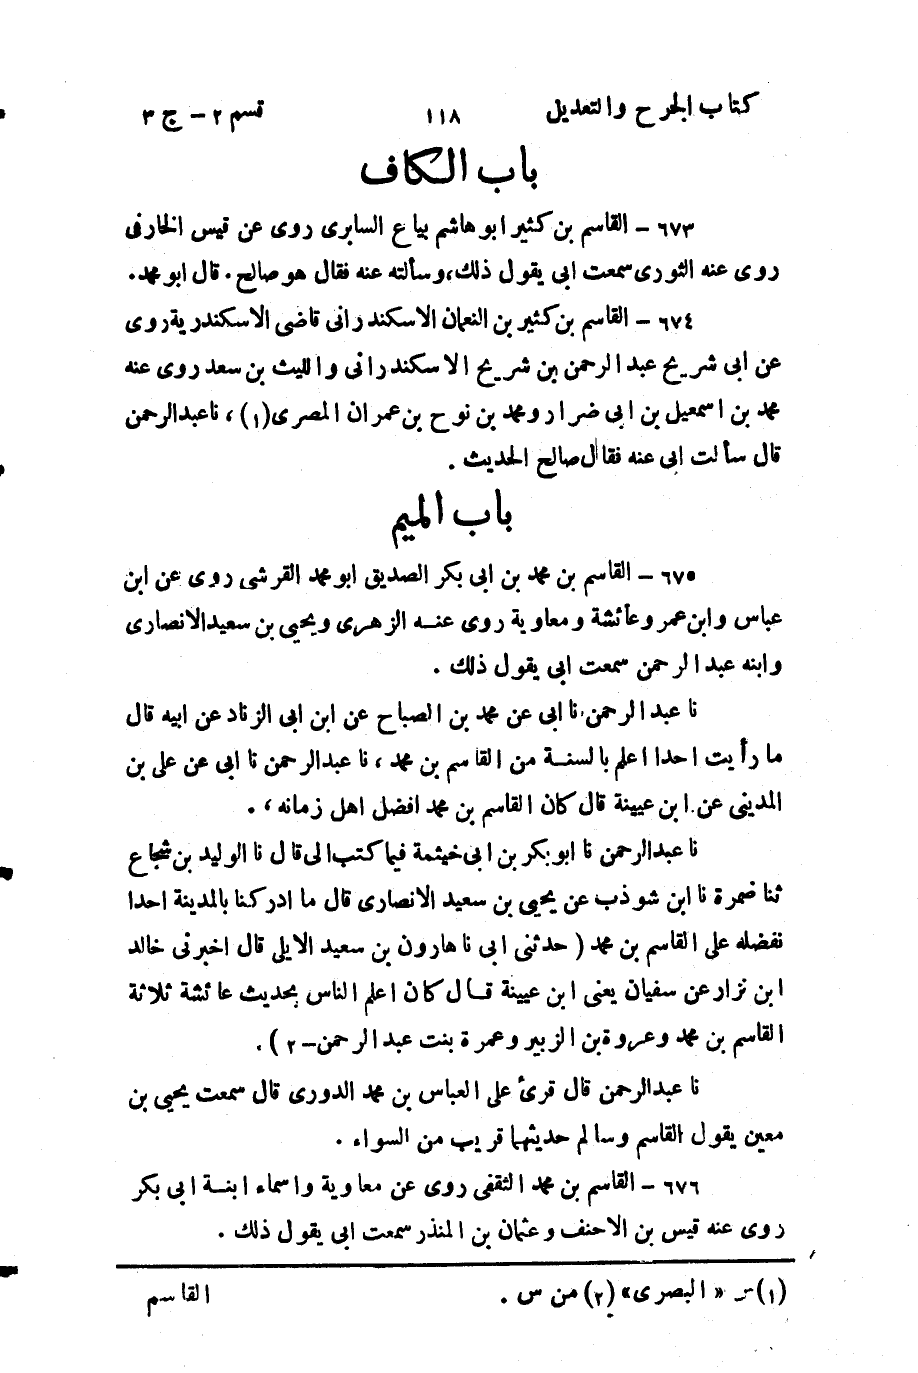 كتاب الجرح والتعديل ١١٨ قسم ٢ - ج ٣
باب الكاف
٦٧٣ - القاسم بن كثير ابو هاشم بياع السابرى روى عن قيس الخارفى
روى عنه الثورى سمعت ابى يقول ذلك، وسألته عنه فقال هو صالح. قال ابو محمد.
٦٧٤ - القاسم بن كثير بن النعمان الاسكندرانى قاضى الاسكندرية روى
عن ابى شريح عبد الرحمن بن شريح الاسكندرانى والليث بن سعد روى عنه
محمد بن اسمعيل بن ابى ضرار ومحمد بن نوح بن عمران المصرى (١)، نا عبد الرحمن
قال سألت ابى عنه فقال صالح الحديث.
باب الميم
٦٧٥ - القاسم بن محمد بن ابى بكر الصديق ابو محمد القرشى روى عن ابن
عباس وابن عمر وعائشة ومعاوية روى عنه الزهرى ويحيى بن سعيد الانصارى
وابنه عبد الرحمن سمعت ابى يقول ذلك.
نا عبد الرحمن نا ابى عن محمد بن الصباح عن ابن ابى الزناد عن ابيه قال
ما رأيت احدا اعلم بالسنة من القاسم بن محمد، نا عبد الرحمن نا ابى عن على بن
المدينى عن ابن عيينة قال كان القاسم بن محمد افضل اهل زمانه،.
نا عبد الرحمن نا ابو بكر بن ابى خيثمة فيما كتب الى قال نا الوليد بن شجاع
ثنا ضمرة نا ابن شوذب عن يحيى بن سعيد الانصارى قال ما ادركنا بالمدينة احدا
نفضله على القاسم بن محمد (حدثنى ابى نا هارون بن سعيد الايلى قال اخبرنى خالد
ابن نزار عن سفيان يعنى ابن عيينة قال كان اعلم الناس بحديث عائشة ثلاثة
القاسم بن محمد وعروة بن الزبير وعمرة بنت عبد الرحمن - ٢).
نا عبد الرحمن قال قرئ على العباس بن محمد الدورى قال سمعت يحيى بن
معين يقول القاسم وسالم حديثهما قريب من السواء.
٦٧٦ - القاسم بن محمد الثقفى روى عن معاوية واسماء ابنة ابى بكر
روى عنه قيس بن الاحنف وعثمان بن المنذر سمعت ابى يقول ذلك.
(١) «البصرى» (٢) من س. القاسم